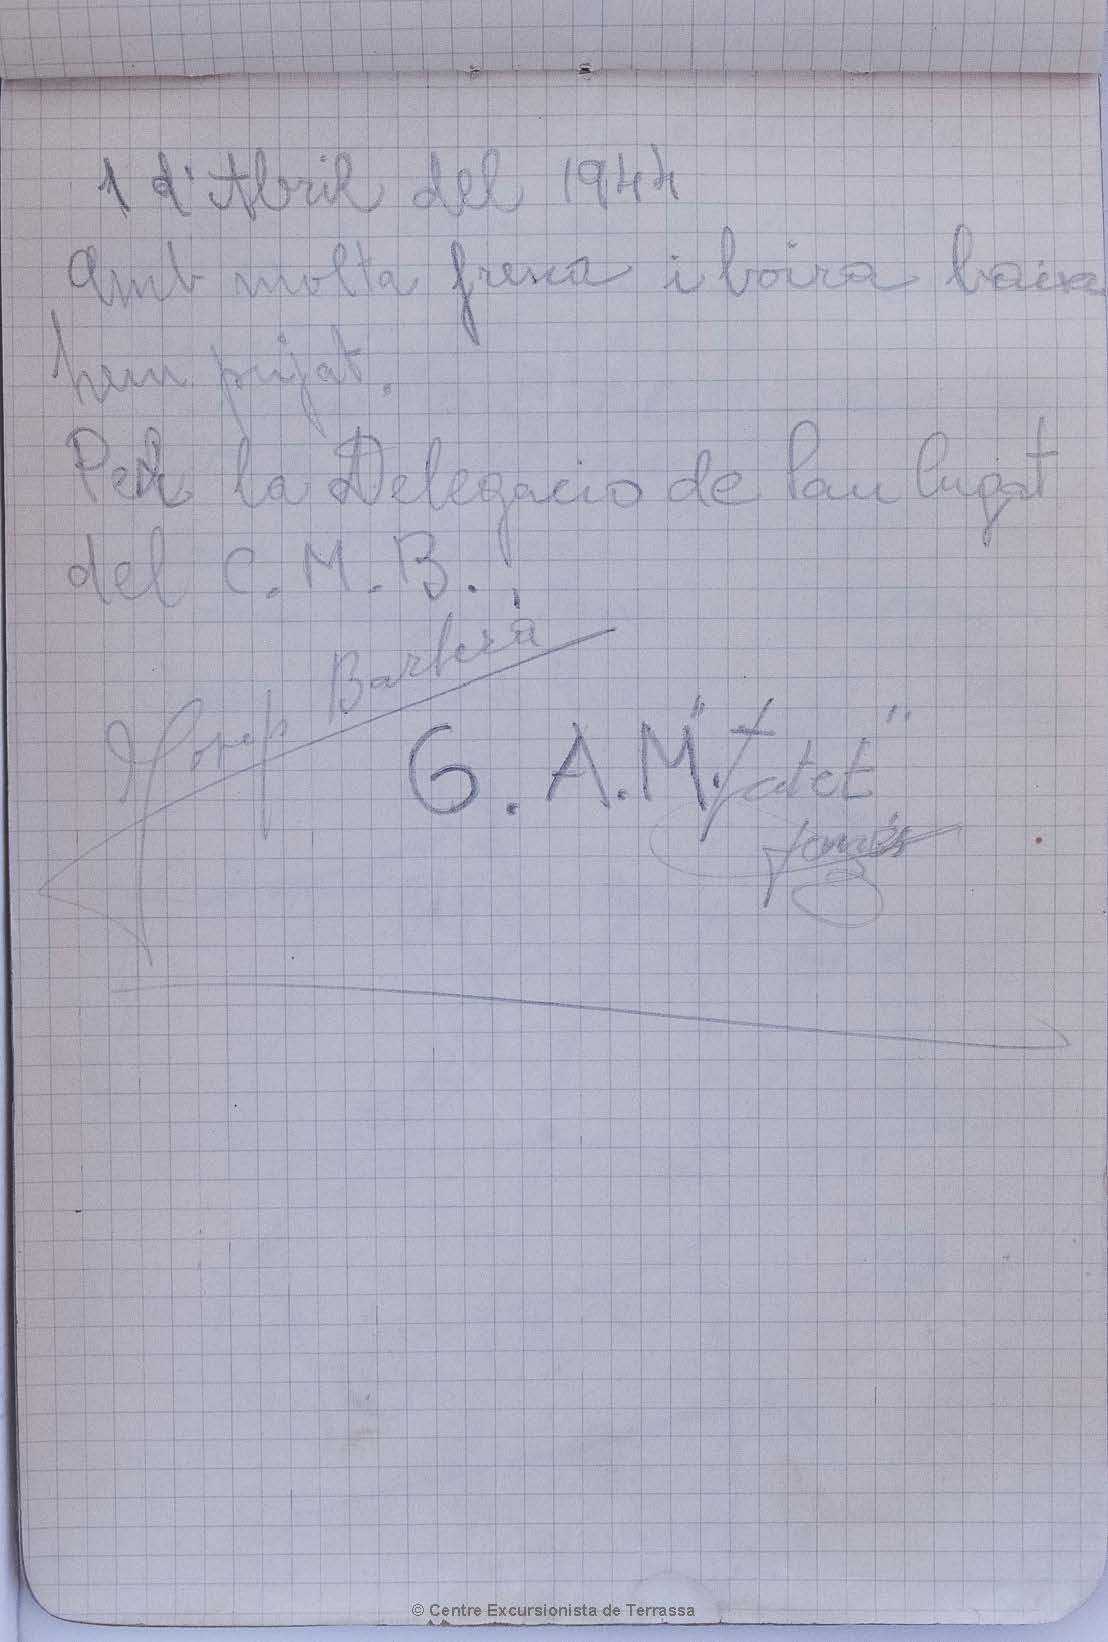 1 d'Abril del 1944
Amb molta fresca i boira baixa
hem pujat.
Per la Delegacio de San Cugat
del C. M. B.
Josep Barberà
G. A. M. "Tatet"
© Centre Excursionista de Terrassa